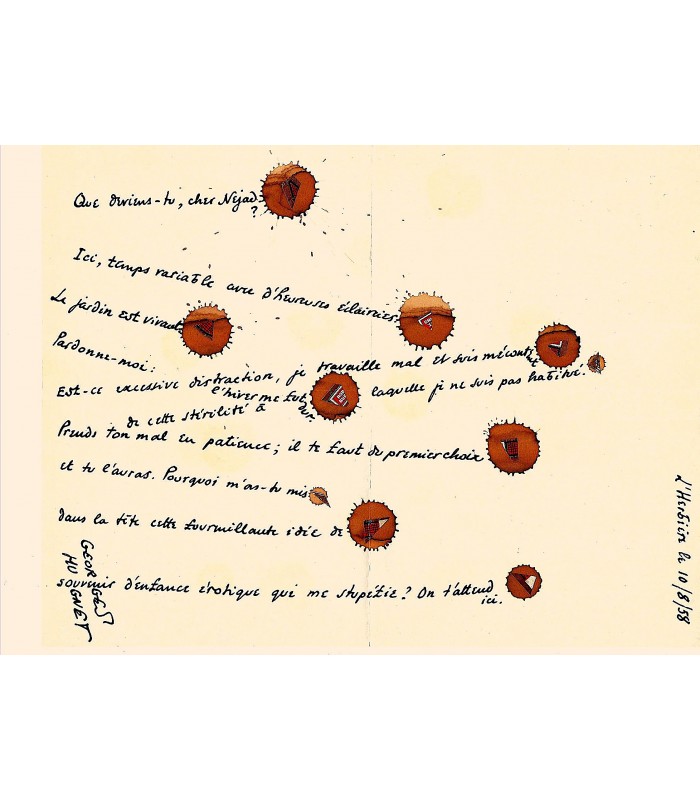 Que deviens-tu, cher Nejad
?
Ici, temps variable avec d'heureuses éclaircies.
Le jardin est vivant
Pardonne-moi :
je travaille mal et suis mécontent
Est-ce excessive distraction,
l'hiver me fut dur.
laquelle je ne suis pas habitué.
de cette stérilité à
Prends ton mal en patience ; il te faut du premier choix
et tu l'auras. Pourquoi m'as-tu mis
dans la tête cette fourmillante idée de
souvenir d'enfance érotique qui me stupéfie ? On t'attend
ici.
GEORGES
HUGNET
L'Herbière le 10/8/58